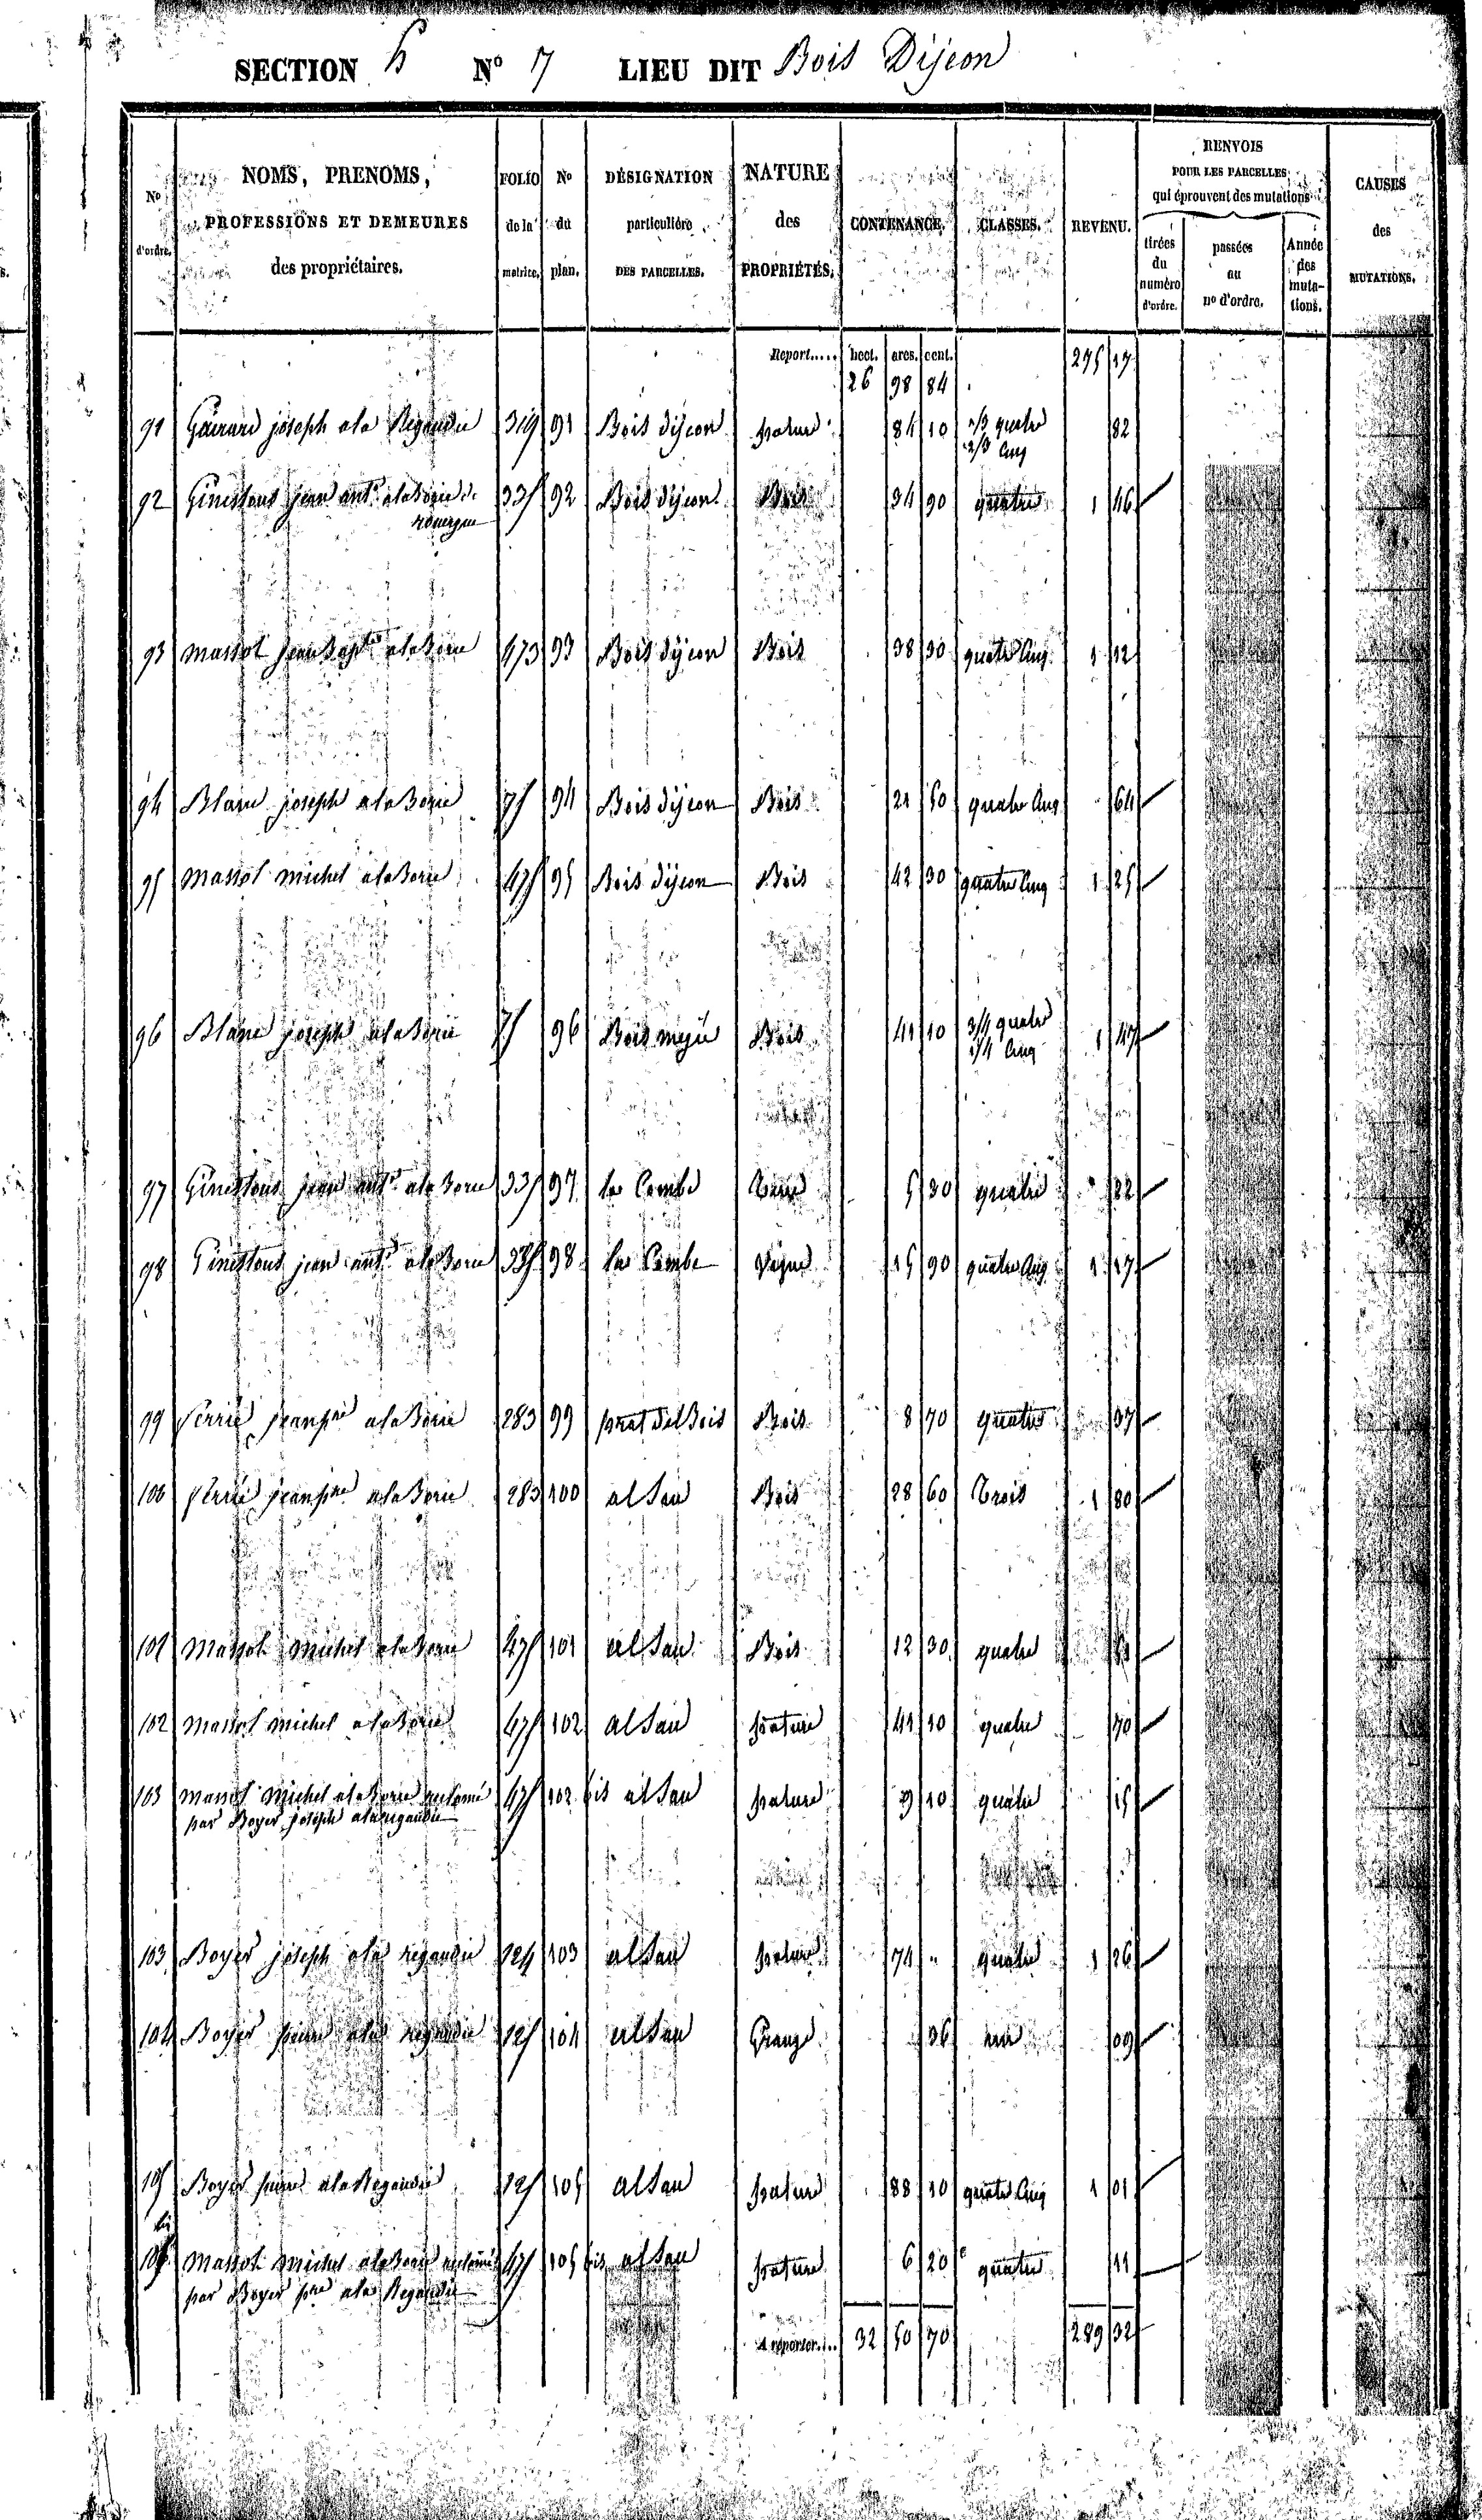 SECTION h N° 7 LIEU DIT Bois Dijeon
N° d'ordre. NOMS, PRENOMS, PROFESSIONS ET DEMEURES des propriétaires. FOLIO de la matrice. N° du plan. DÉSIGNATION particulière DES PARCELLES. NATURE des PROPRIÉTÉS. CONTENANCE. CLASSES. REVENU. RENVOIS POUR LES PARCELLES qui éprouvent des mutations tirées du numéro d'ordre. passées au n° d'ordre. Année des mutations. CAUSES des MUTATIONS.
Report..... hect. ares. cent.
26 98 84 275 17
91 joseph a la Regaudie 319 91 Bois dijeon pature 84 10 1/3 quatre 82
2/3 Cinq
92 Ginestous jean ant.e a la Borie de 335 92 Bois dijeon Bois 34 90 quatre 1 46
rouergue
93 massot jean Bapte a la Borie 473 93 Bois dijeon Bois 38 30 quatre Cinq 1 12
94 joseph a la Borie 75 94 Bois dijeon Bois 21 50 quatre Cinq 64
95 massot michel a la Borie 475 95 Bois dijeon Bois 42 30 quatre Cinq 1 25
96 joseph a la Borie 75 96 Bois Bois 41 10 3/4 quatre 1 47
1/4 Cinq
97 Ginestous jean ant.e a la Borie 335 97 la Combe 5 30 quatre 32
98 Ginestous jean ant.e a la Borie 335 98 la Combe Vigne 15 90 quatre Cinq 1 17
99 ferrié jean pre a la Borie 283 99 prat del Bois Bois 8 70 quatre 37
100 ferrié jean pre a la Borie 283 100 al Sau Bois 28 60 Trois 1 80
101 Massot michel a la Borie 475 101 al Sau Bois 12 30 quatre
102 massot michel a la Borie 475 102 al Sau pature 41 10 quatre 70
103 massot michel a la Borie 475 102 bis al Sau pature 9 10 quatre 15
par Boyer joseph a la regaudie
103 Boyer joseph a la regaudie 124 103 al Sau pature 74 " quatre 1 26
104 Boyer pierre a la regaudie 125 104 al Sau Grange 36 une 09
105 Boyer pierre a la Regaudie 125 105 al Sau pature 88 10 quatre Cinq 1 01
bis
105 Massot michel a la Borie 475 105 bis al Sau pature 6 20 quatre 11
par Boyer pre a la Regaudie
A reporter... 32 50 70 289 32